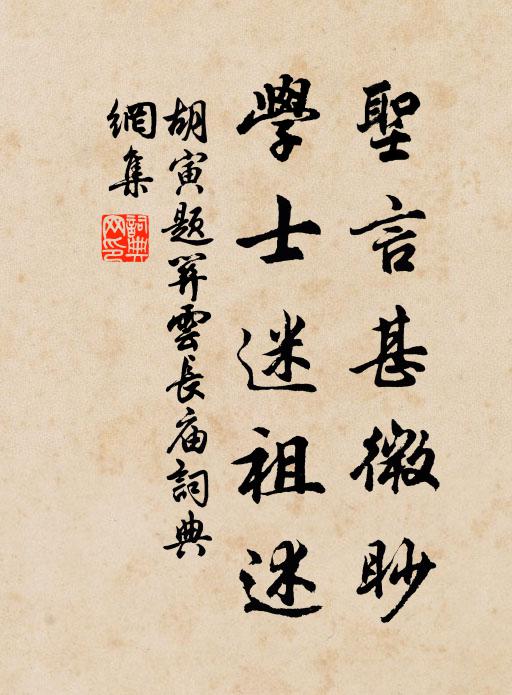 聖言甚微眇
學士迷祖述
胡寅題關雲長庙詞典
網集
詞典網印